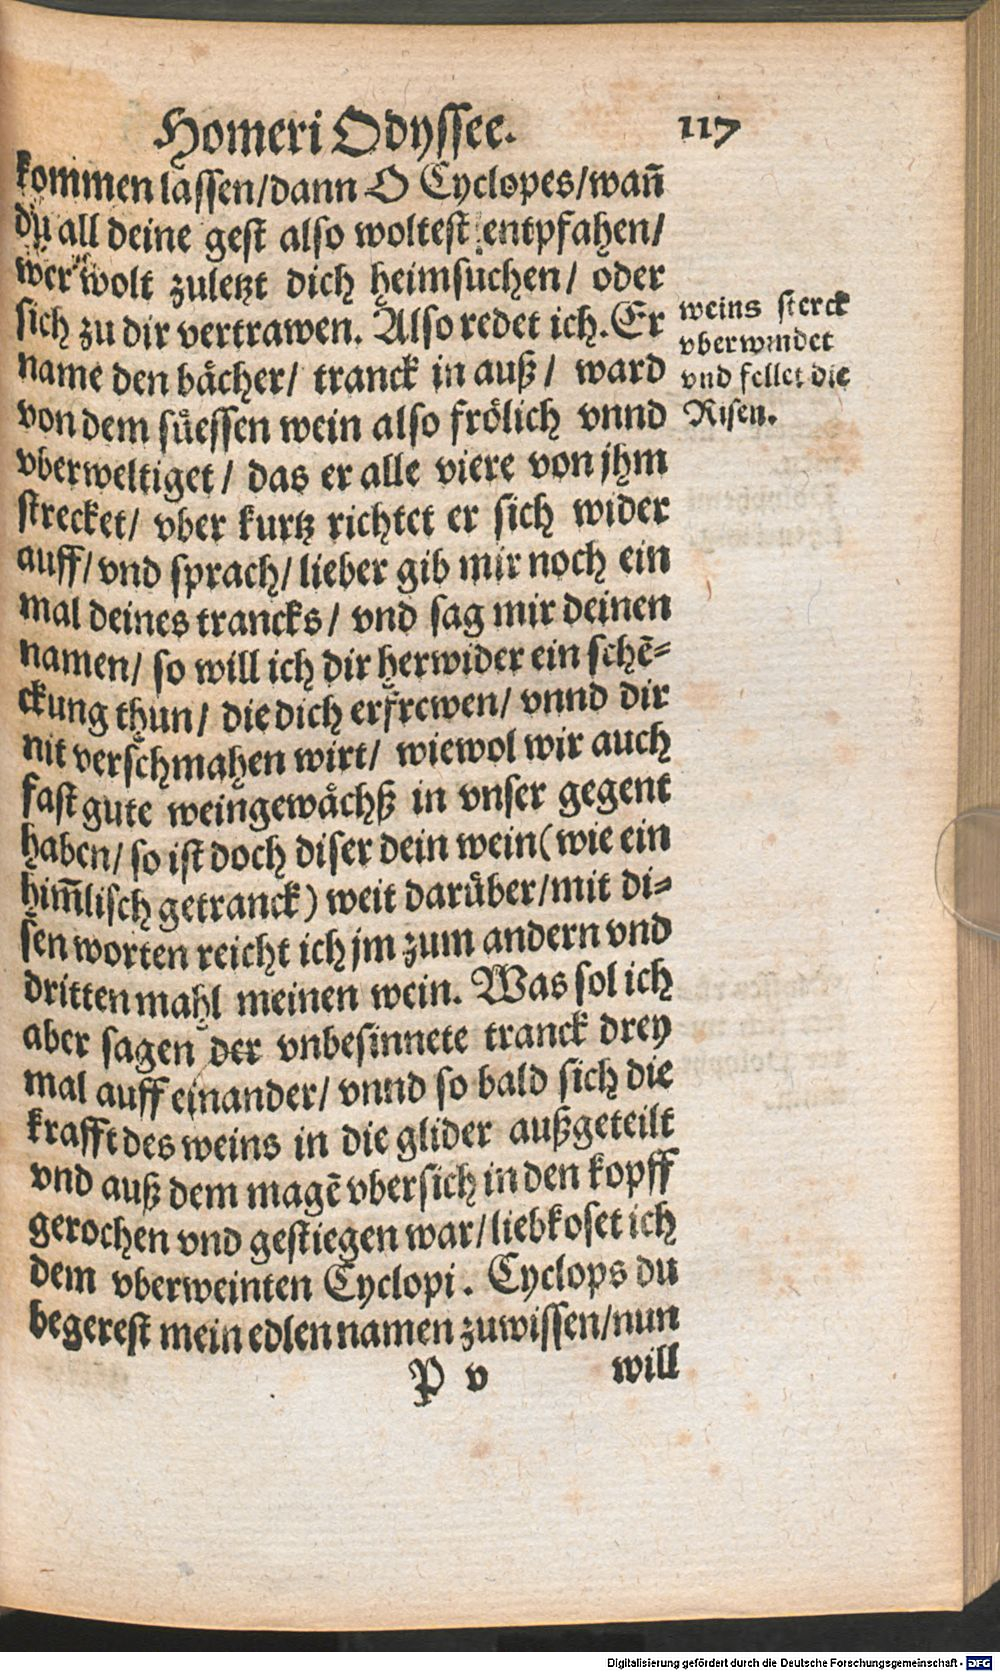 Homeri Odyssee. 117
kommen lassen/dann O Cyclopes/wañ
du all deine gest also woltest entpfahen/
wer wolt zuletzt dich heimsuchen/ oder
sich zu dir vertrawen. Also redet ich. Er
name den bächer/ tranck in auß/ ward
von dem süessen wein also frölich vnnd
vberweltiget/ das er alle viere von jhm
strecket/ vber kurtz richtet er sich wider
auff/vnd sprach/lieber gib mir noch ein
mal deines trancks/ vnd sag mir deinen
namen/ so will ich dir herwider ein schẽ-
ckung thun/ die dich erfrewen/ vnnd dir
nit verschmahen wirt/ wiewol wir auch
fast gute weingewächß in vnser gegent
haben/ so ist doch diser dein wein (wie ein
him̃lisch getranck) weit darüber/mit di-
sen worten reicht ich jm zum andern vnd
dritten mahl meinen wein. Was sol ich
aber sagen der vnbesinnete tranck drey
mal auff einander/ vnnd so bald sich die
krafft des weins in die glider außgeteilt
vnd auß dem magẽ vbersich in den kopff
gerochen vnd gestiegen war/liebkoset ich
dem vberweinten Cyclopi. Cyclops du
begerest mein edlen namen zuwissen/nun
P v will
weins sterck
vberwindet
vnd fellet die
Risen.
Digitalisierung gefördert durch die Deutsche Forschungsgemeinschaft - DFG